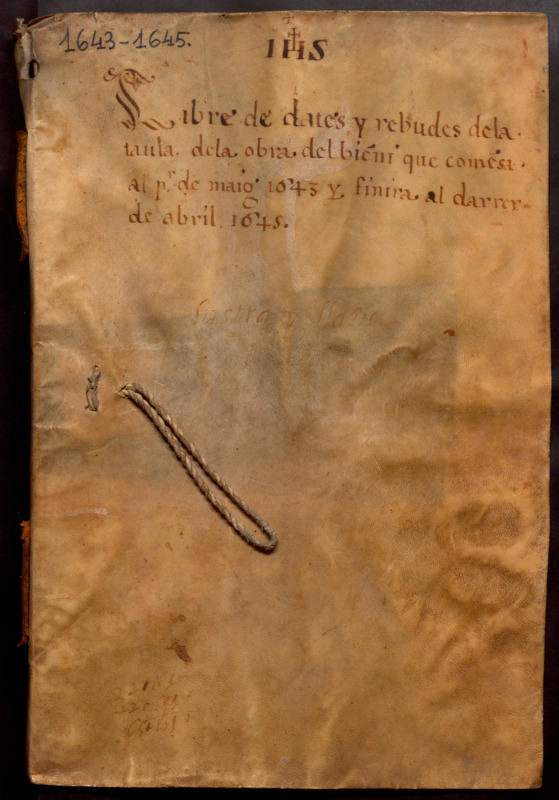 1643-1645.
IHS
Libre de dates, y rebudes dela.
taula. dela obra del bieni que comesa.
al pr. de maig 1643 y finira al darrer
de abril. 1645.